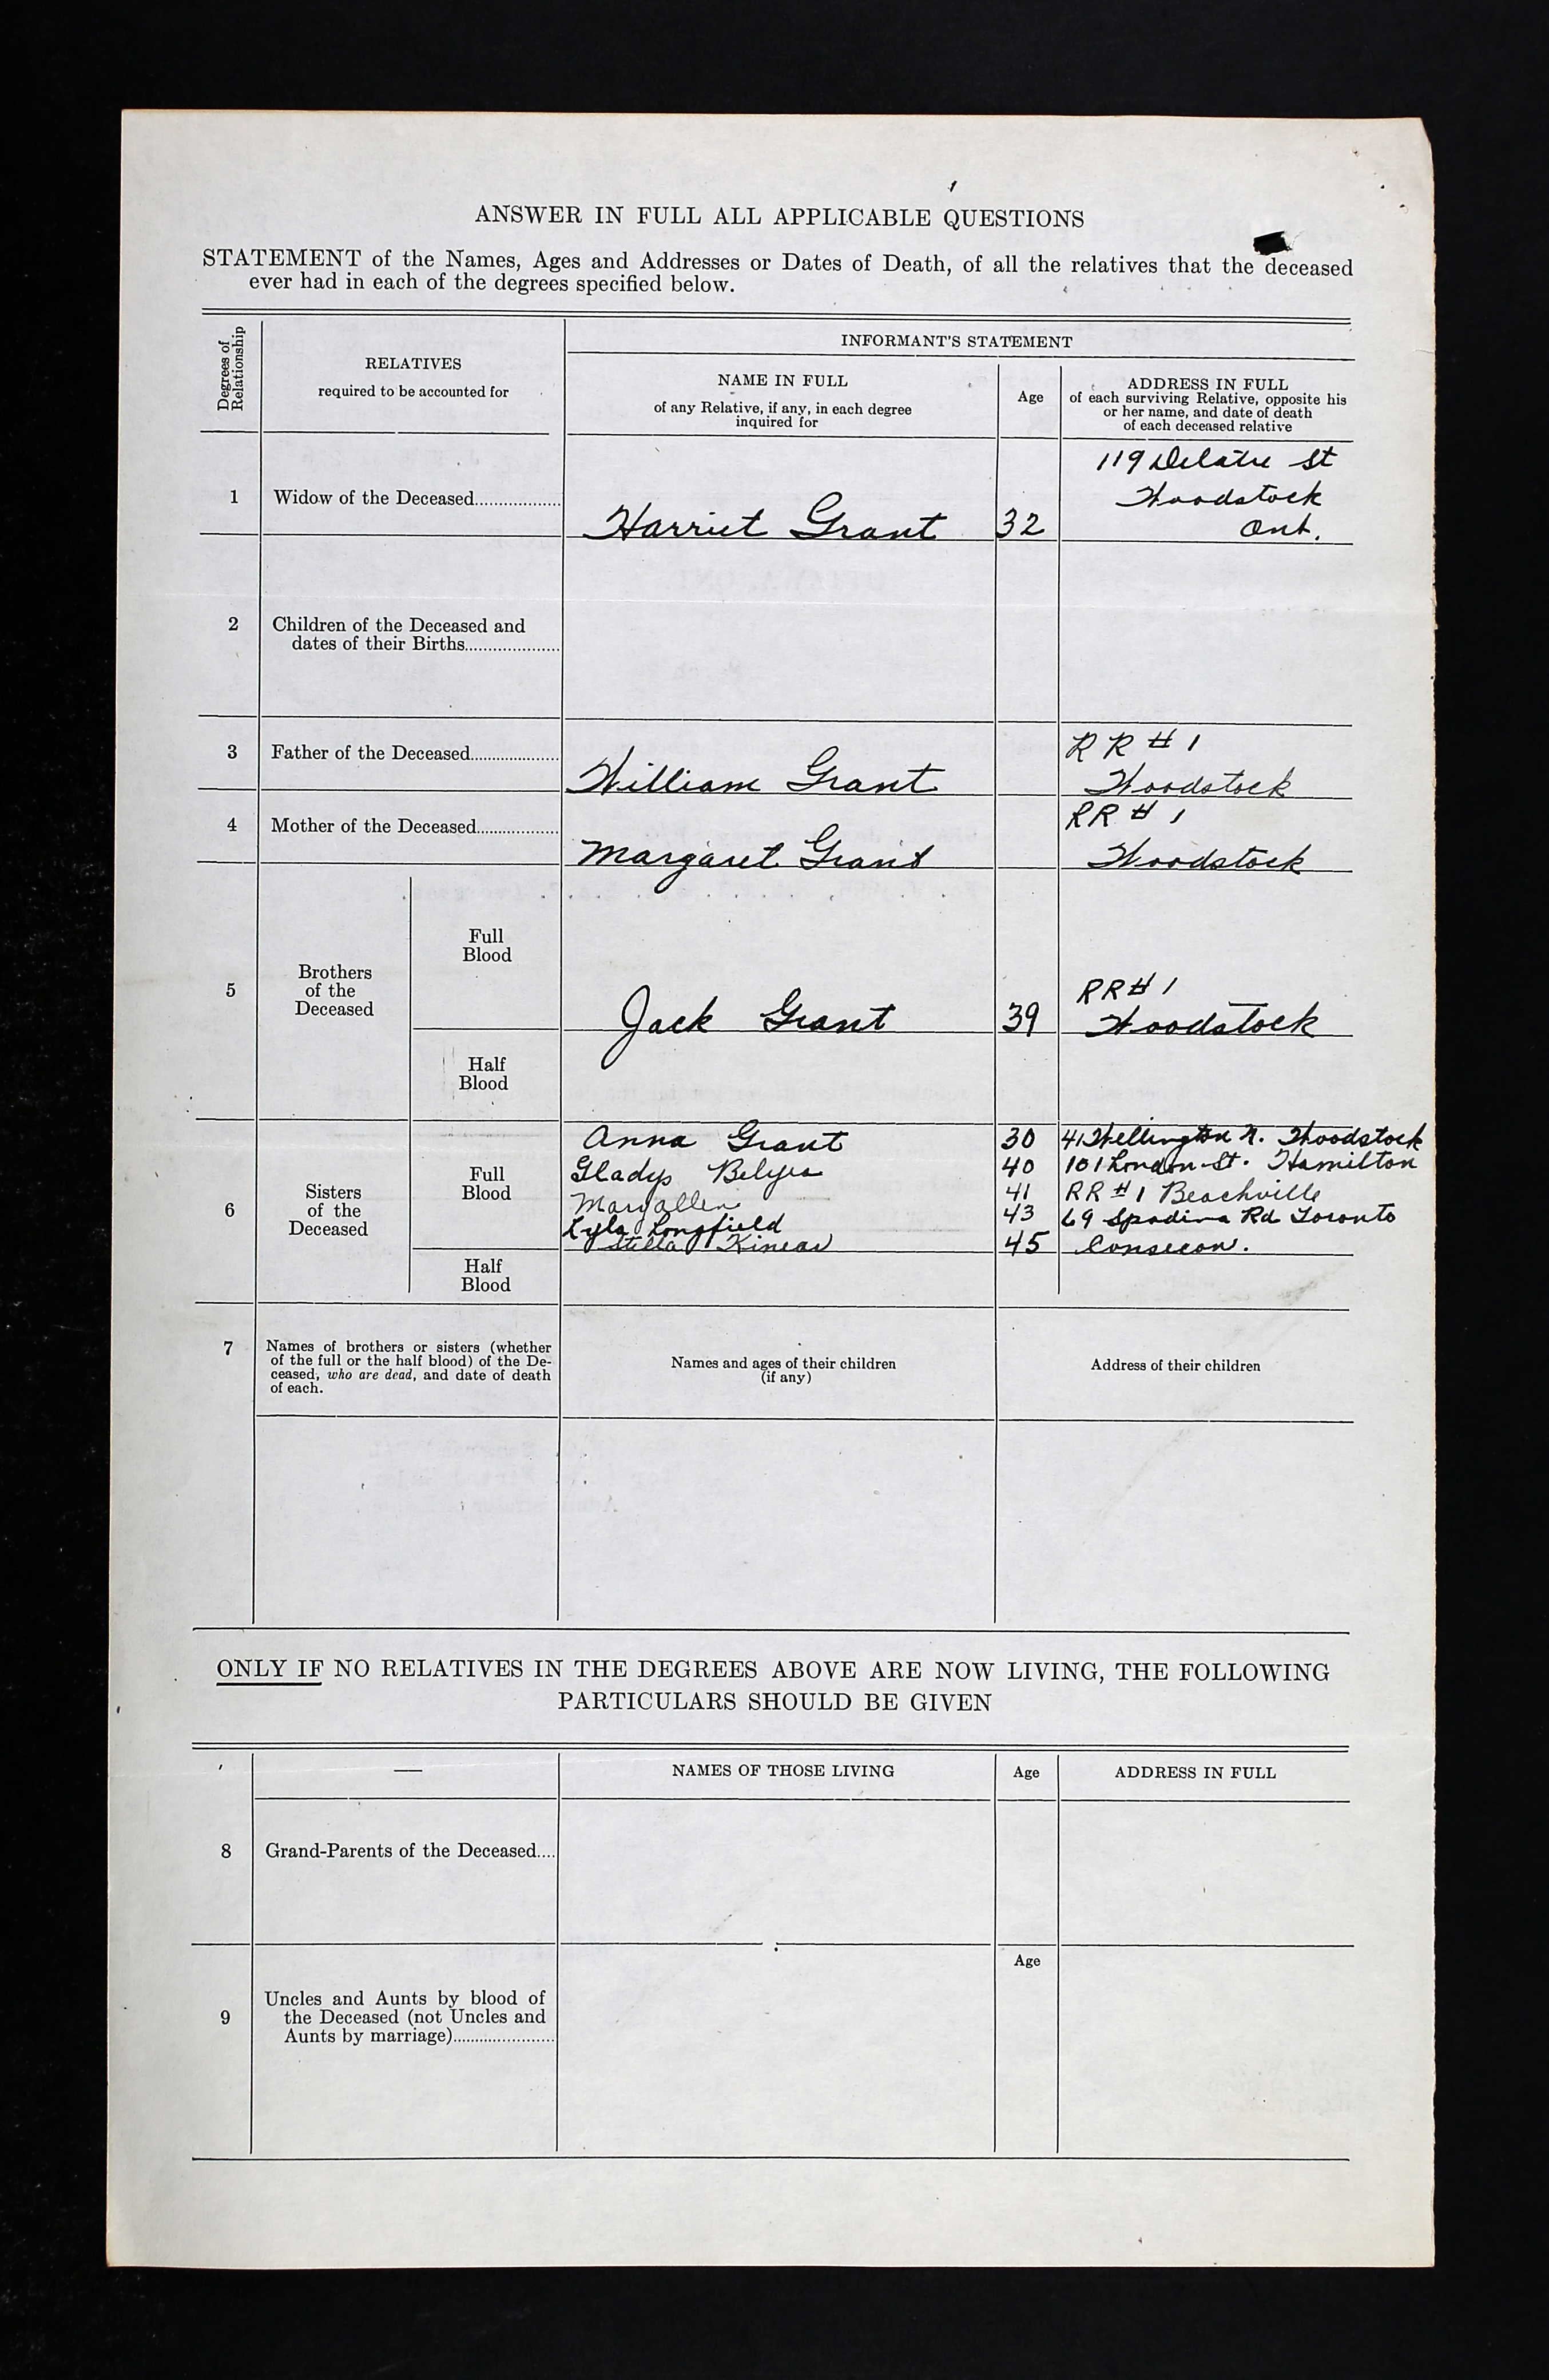 ANSWER IN FULL ALL APPLICABLE QUESTIONS
STATEMENT of the Names, Ages and Addresses or Dates of Death, of all the relatives that the deceased
ever had in each of the degrees specified below.
Degrees of
Relationship
RELATIVES
required to be accounted for
INFORMANT'S STATEMENT
NAME IN FULL
of any Relative, if any, in each degree
inquired for
Age
ADDRESS IN FULL
of each surviving Relative, opposite his
or her name, and date of death
of each deceased relative
1
Widow of the Deceased
Harriet Grant
32
119 Delatre St
Woodstock
Ont.
2
Children of the Deceased and
dates of their Births
3
Father of the Deceased
William Grant
RR #1
Woodstock
4
Mother of the Deceased
Margaret Grant
RR #1
Woodstock
5
Brothers
of the
Deceased
Full
Blood
Jack Grant
39
RR#1
Woodstock
Half
Blood
6
Sisters
of the
Deceased
Full
Blood
Anna Grant 30 41 Wellington N. Woodstock
Gladys Belyea 40 101 London St. Hamilton
Mary Allen 41 RR #1 Beachville
Lyla Longfield 43 69 Spadina Rd Toronto
Stella Kinear 45 Consecon.
Half
Blood
7
Names of brothers or sisters (whether
of the full or the half blood) of the De-
ceased, who are dead, and date of death
of each.
Names and ages of their children
(if any)
Address of their children
ONLY IF NO RELATIVES IN THE DEGREES ABOVE ARE NOW LIVING, THE FOLLOWING
PARTICULARS SHOULD BE GIVEN
—
NAMES OF THOSE LIVING
Age
ADDRESS IN FULL
8
Grand-Parents of the Deceased....
Age
9
Uncles and Aunts by blood of
the Deceased (not Uncles and
Aunts by marriage)